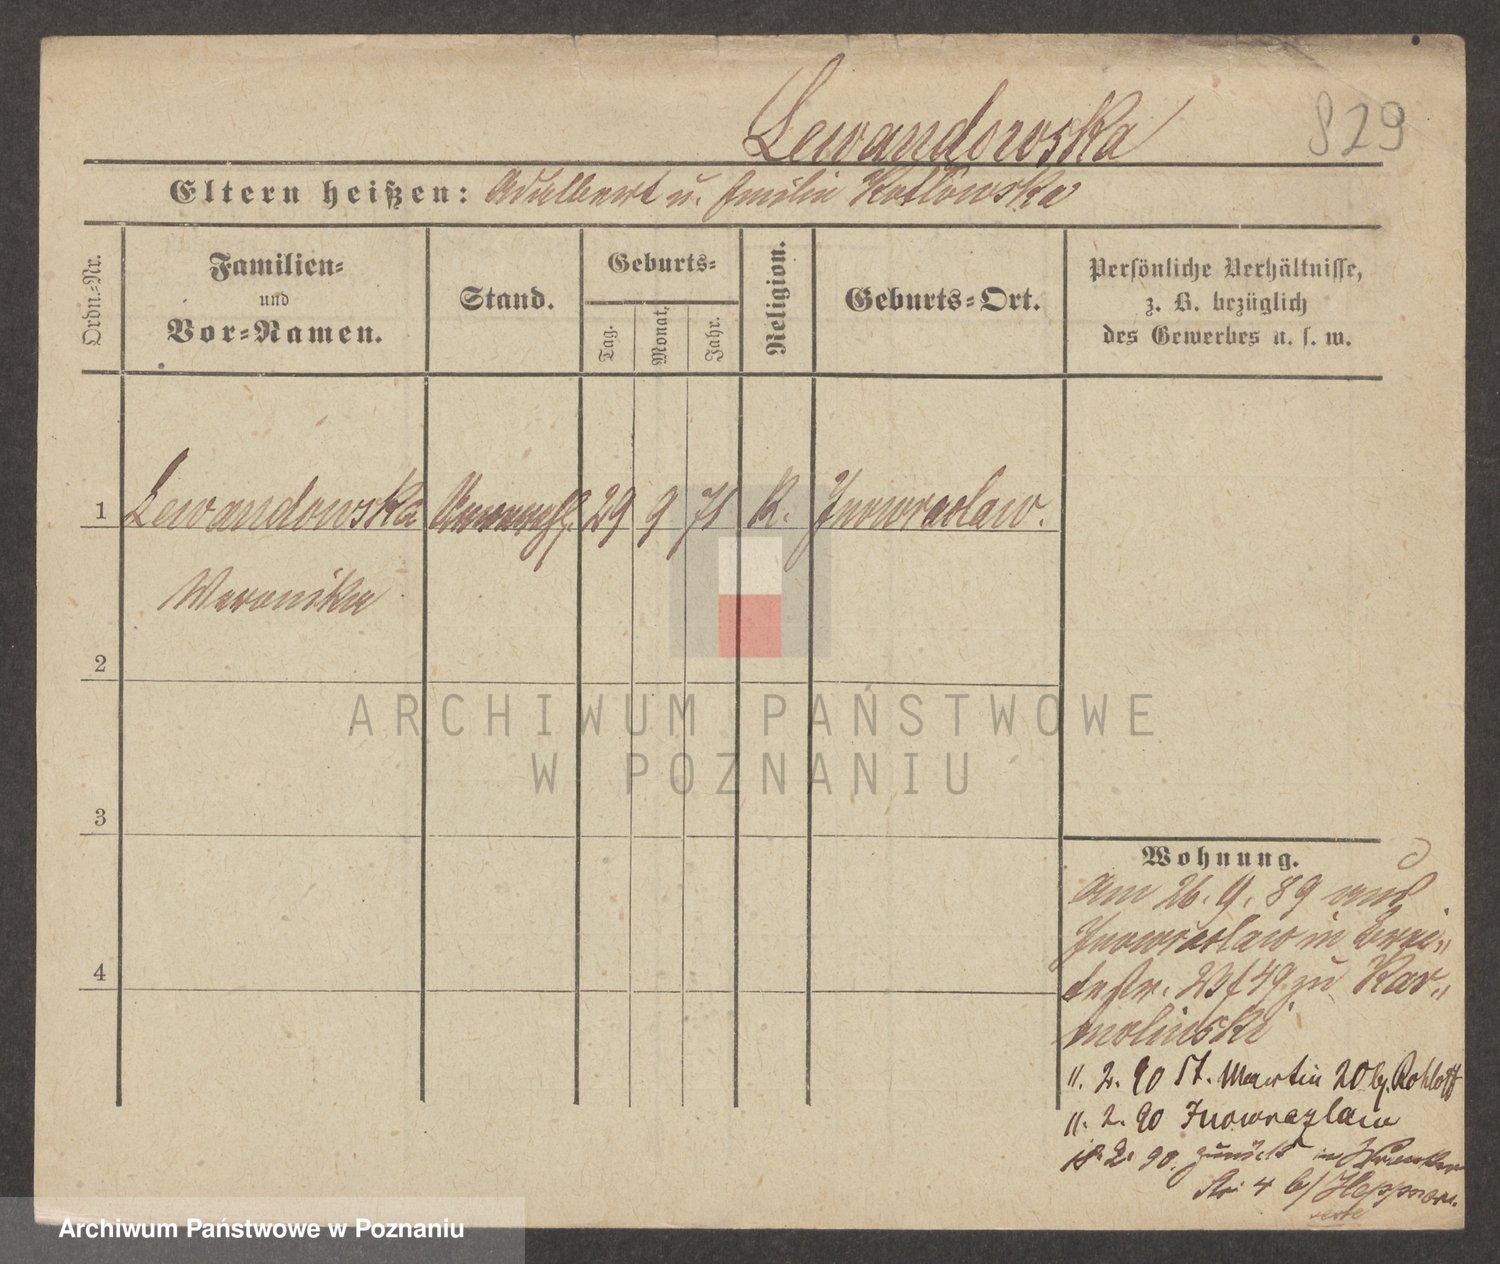 Lewandowska 829
Eltern heißen: Adalbert u. Emilia Kotlowska
Ordn.-Nr.
Familien-
und
Vor-Namen.
Stand.
Geburts-
Tag.
Monat.
Jahr.
Religion.
Geburts-Ort.
Persönliche Verhältnisse,
z. B. bezüglich
des Gewerbes u. s. w.
1 Lewandowska 29 9 71 K. Inowraclaw.
Weronika
2
3
4
ARCHIWUM PAŃSTWOWE
W POZNANIU
Wohnung.
am 26. 9. 89 aus
Inowraclaw in Brei-
testr. zu Kar-
molinski
11. 2. 90 St. Martin 20 bj. Rohloff
11. 2. 90 Inowrazlaw
18. 2. 90. zurück in
Str. 4 b/
Archiwum Państwowe w Poznaniu